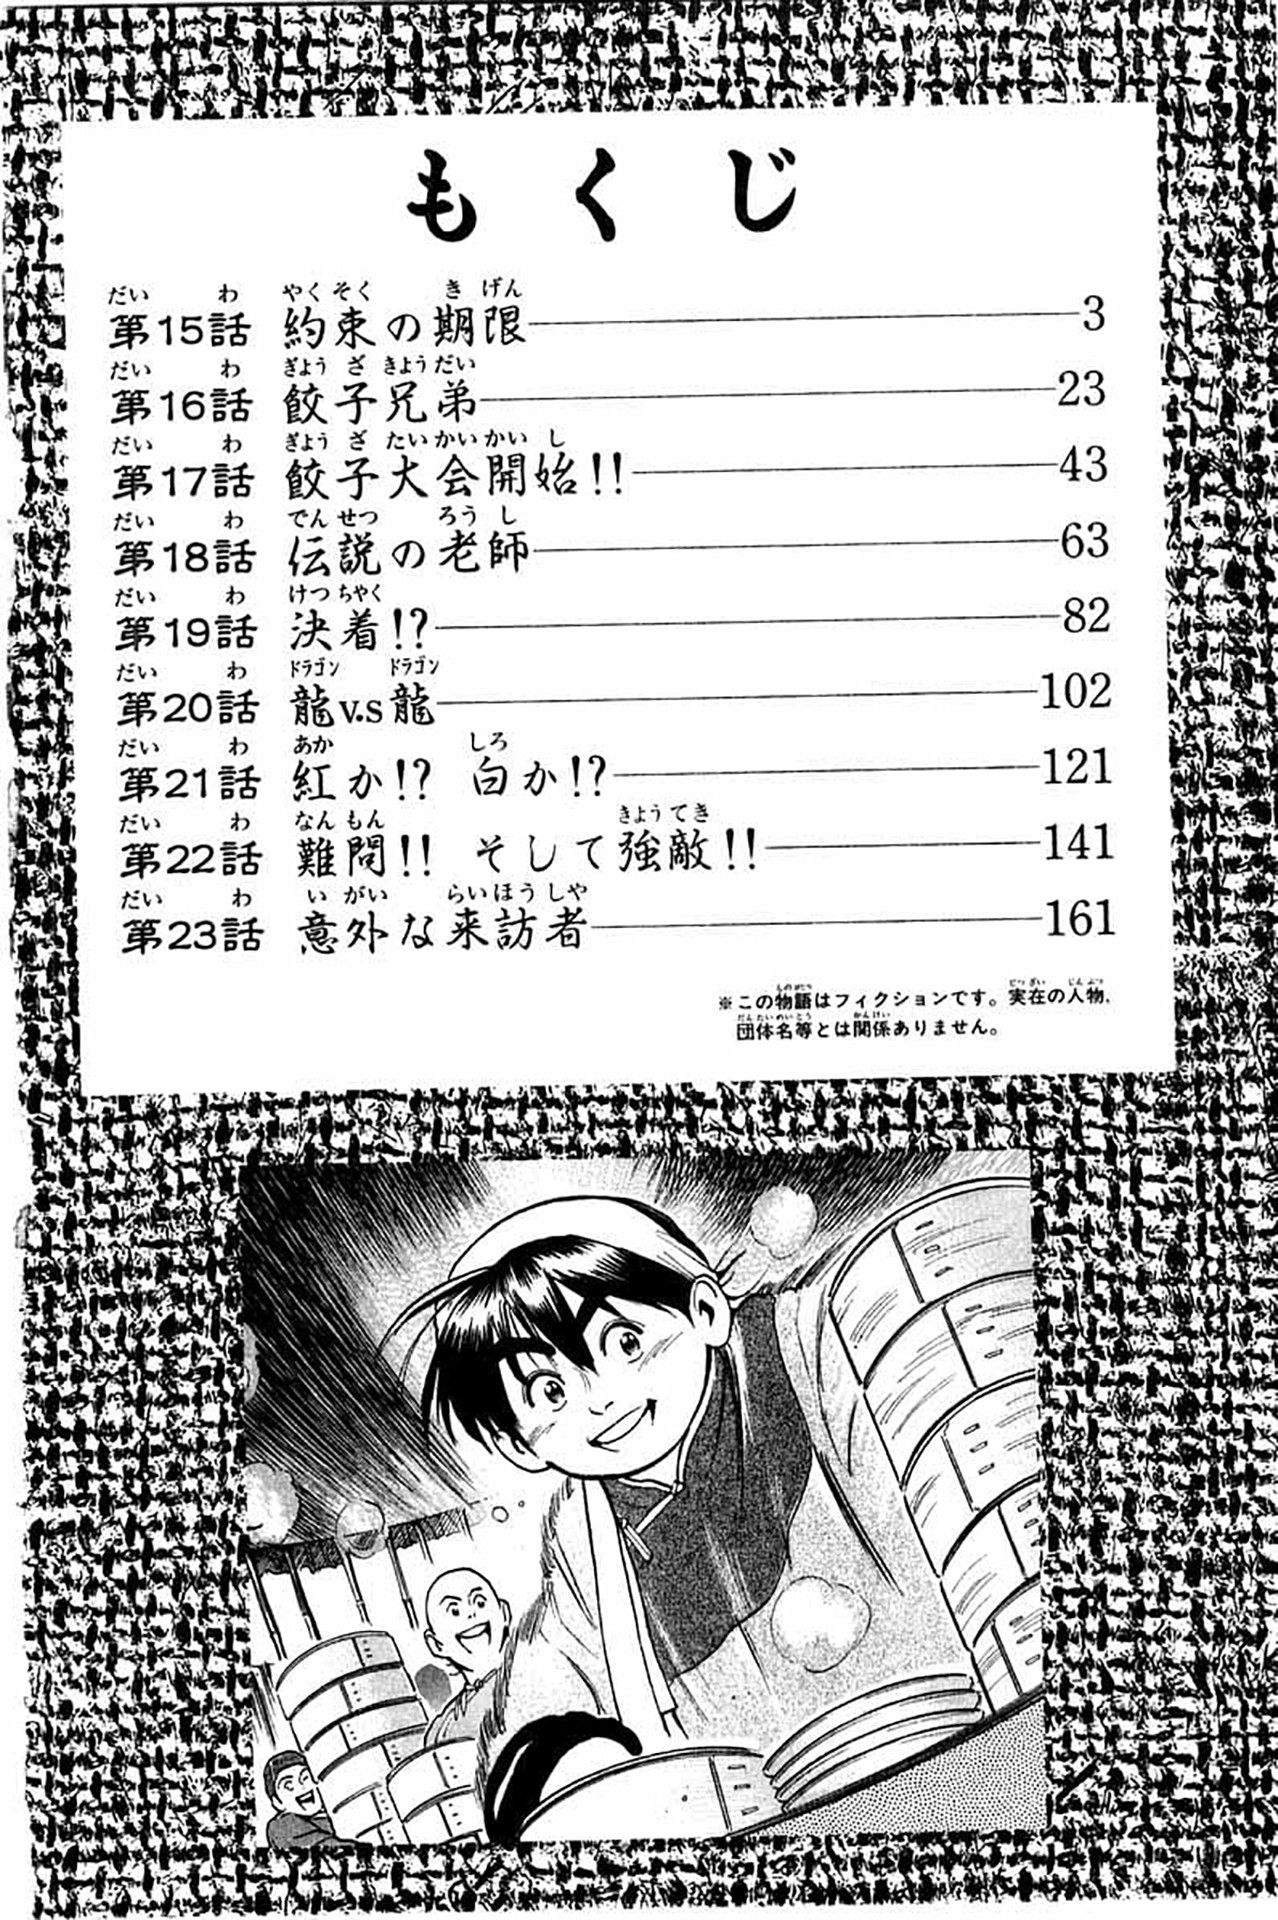 もくじ
第15話 約束の期限 3
第16話 餃子兄弟 23
第17話 餃子大会開始!! 43
第18話 伝説の老師 63
第19話 決着!? 82
第20話 龍v.s龍 102
第21話 紅か!? 白か!? 121
第22話 難問!! そして強敵!! 141
第23話 意外な来訪者 161
※この物語はフィクションです。実在の人物、
団体名等とは関係ありません。